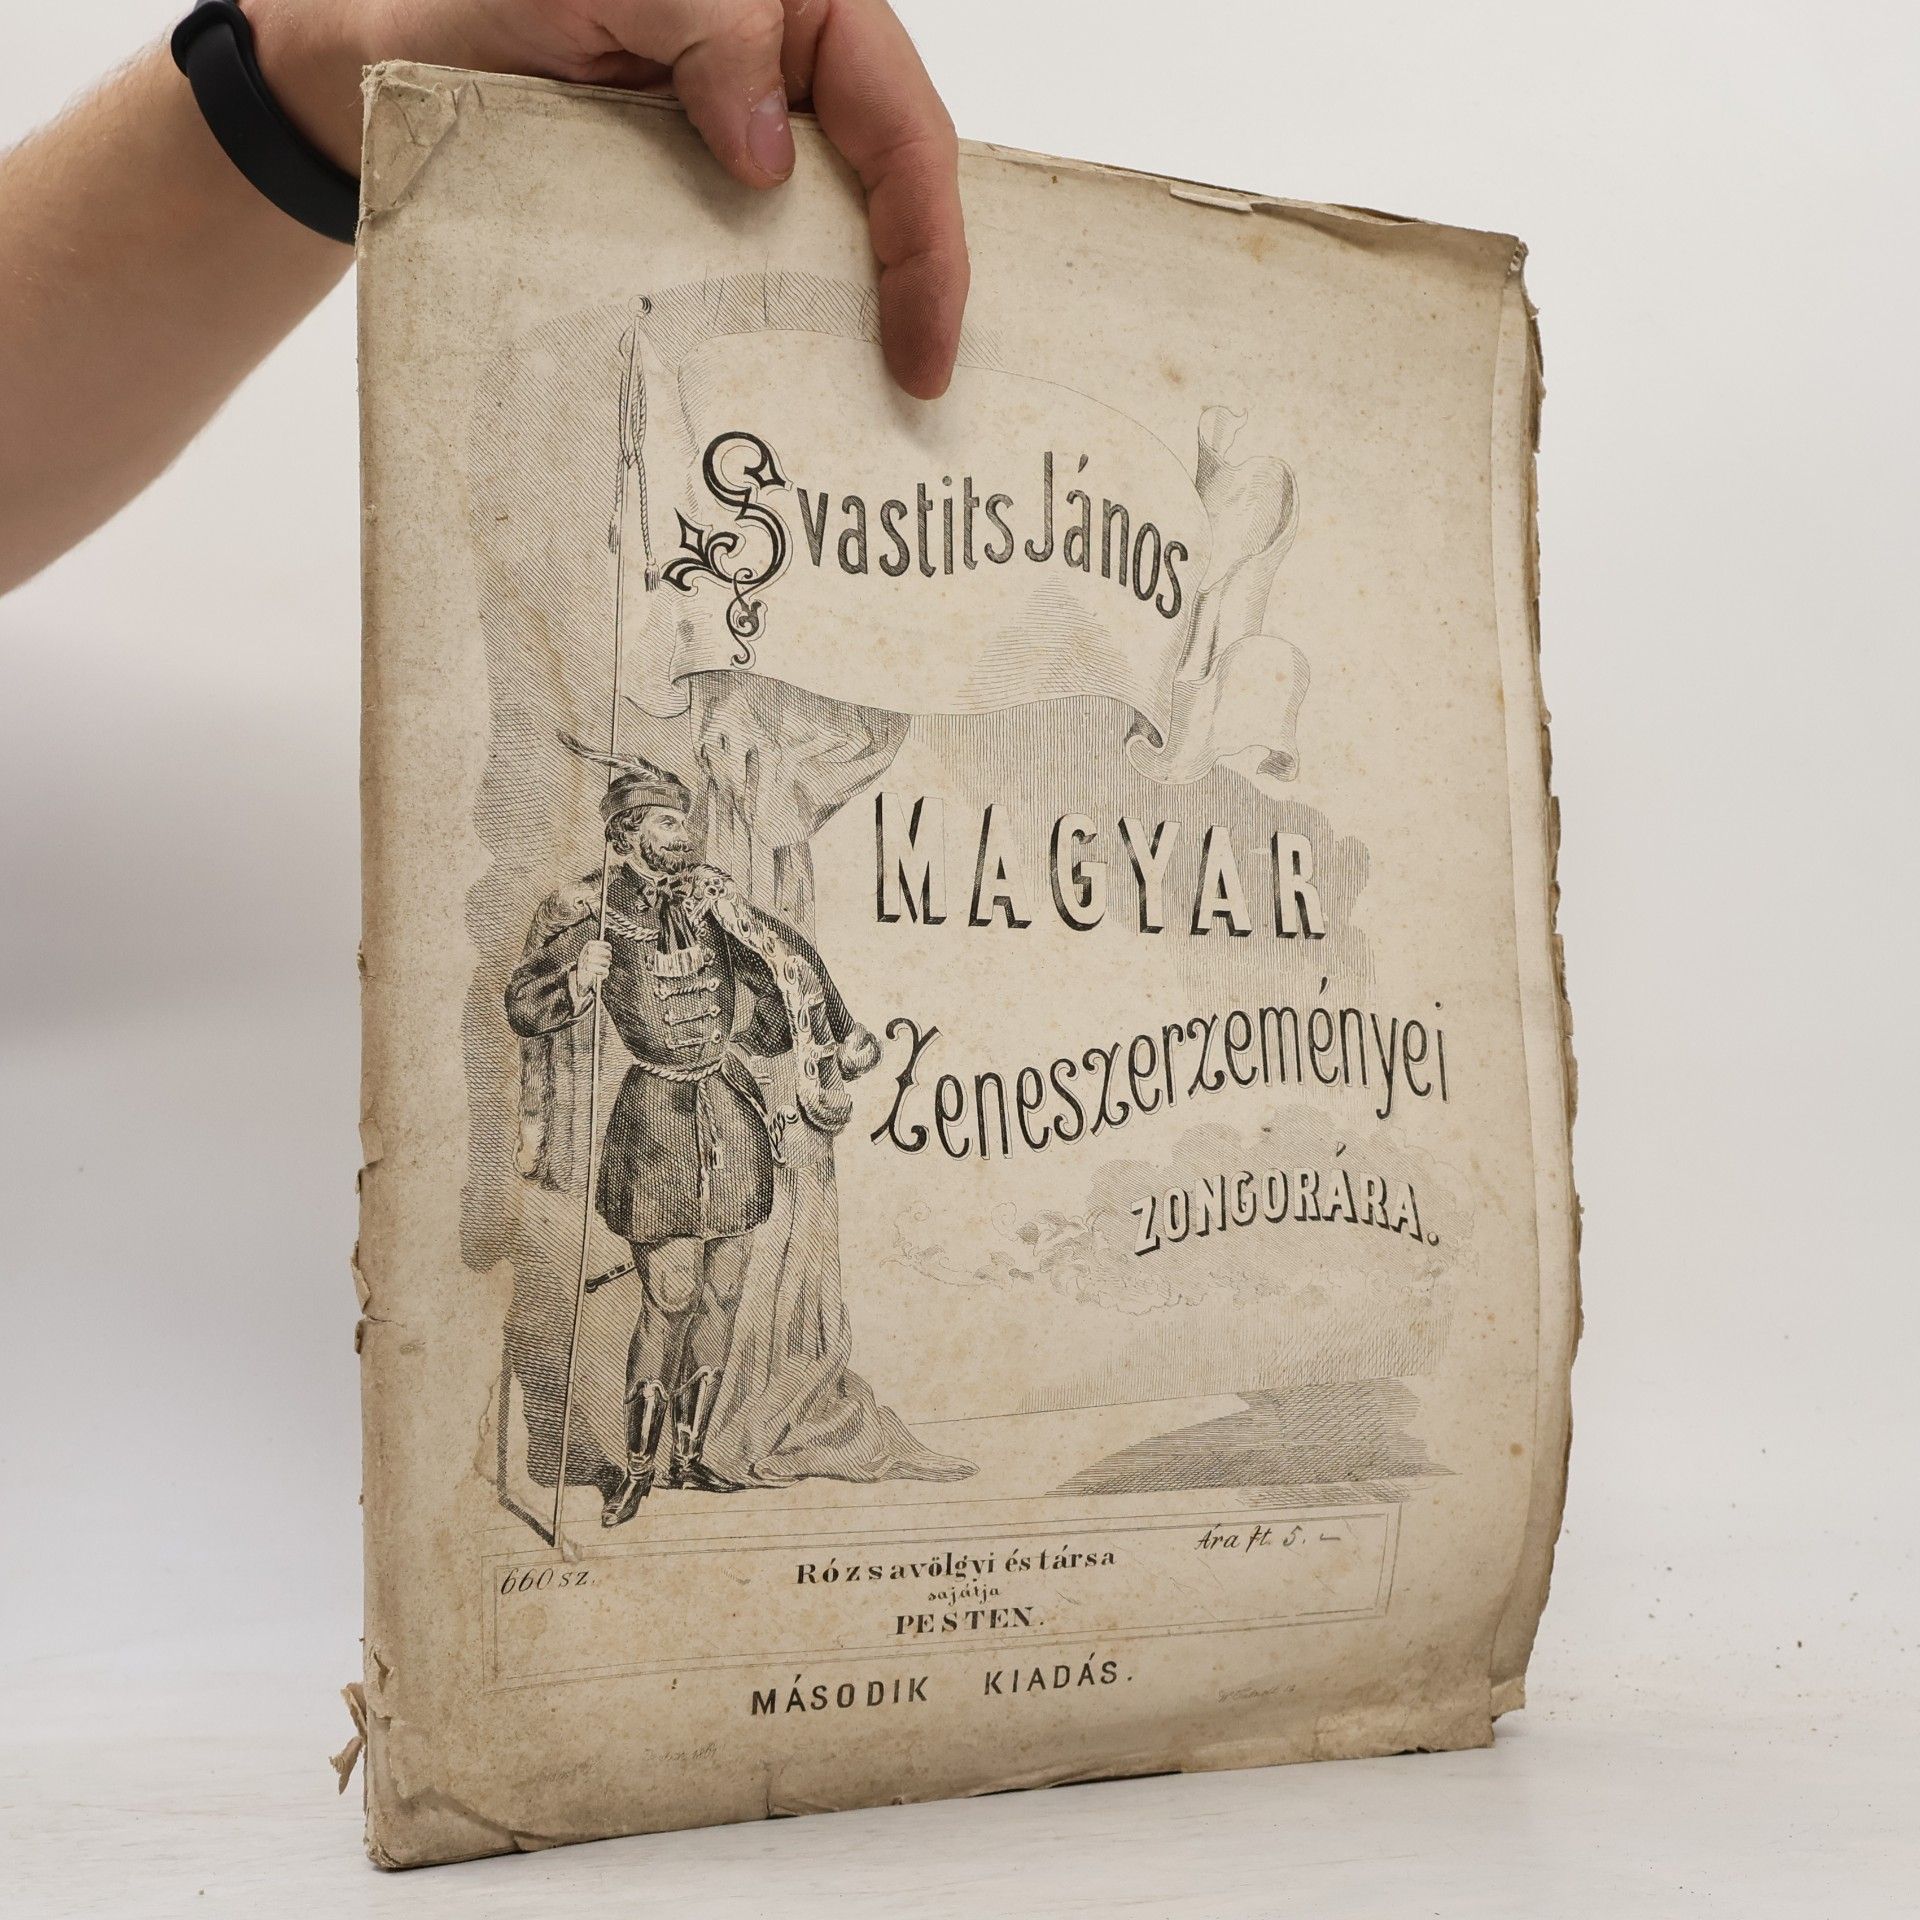 Svastits János
MAGYAR
Zeneszerzeményei
ZONGORÁRA.
660 sz.
Ára ft. 5. –
Rózsavölgyi és társa
sajátja
PESTEN.
MÁSODIK KIADÁS.